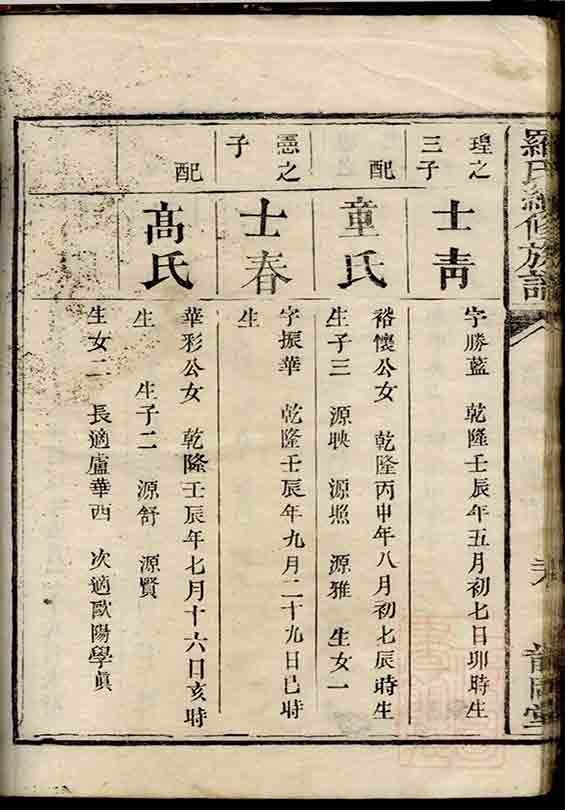 羅氏續修族譜
瑝之
三子
士靑
字勝藍 乾隆壬辰年五月初七日卯時生
配
童氏
裕懷公女 乾隆丙申年八月初七辰時生
生子三 源映 源照 源雅 生女一
憑之
子
士春
字振華 乾隆壬辰年九月二十九日巳時
生
配
高氏
華彩公女 乾隆壬辰年七月十六日亥時
生 生子二 源舒 源賢
生女二 長適盧華西 次適歐陽學眞